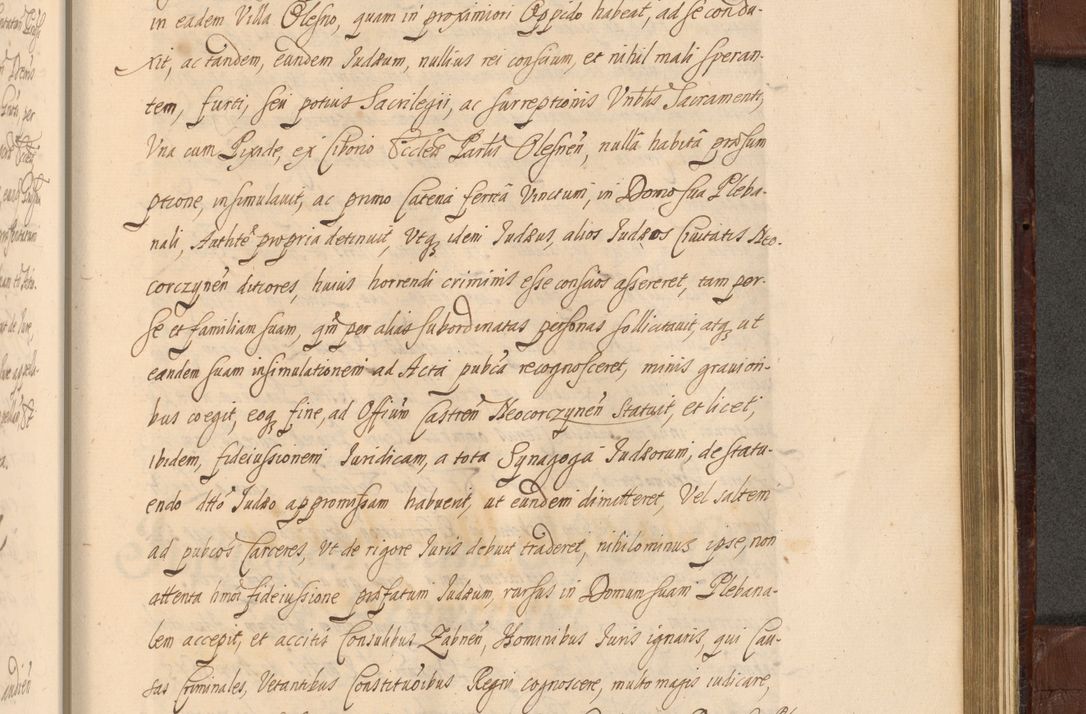 in eadem Villa Olesno, quam in proximiori Oppido habeat, ad se condu-
xit, ac tandem, eundem Judæum, nullius rei conscium, et nihil mali speran-
tem, furti, seu potius Sacrilegii, ac surreptionis Vnblis Sacramenti,
Vna cum Pixide, ex Ciborio Eccleæ Parlis Olesnen, nulla habita præsum
ptione, insimulauit, ac primo Catena ferrea Vinctum, in Domo sua Pleba-
nali, Authte propria detinuit, Vtq idem Judæus, alios Judæos Ciuitatis Neo-
corczynen ditiores, huius horrendi criminis esse conscios assereret, tam per
se et familiam suam, qm per alias subordinatas personas sollicitauit, atq ut
eandem suam insimulationem ad Acta pubca recognosceret, minis grauiori-
bus coegit, eoq fine, ad Officium Castren Neocorczynen Statuit, et licet,
ibidem, fideiussionem Juridicam, a tota Synagoga Judæorum, de statu-
endo dtto Judæo appromissam habuerit, ut eundem dimitteret, Vel saltem
ad pubcos Carceres, Vt de rigore Juris debuit traderet, nihilominus ipse, non
attenta hmoi fideiussione præfatum Judæum, rursus in Domum suam Plebana-
lem accepit, et accitis Consulibus Zabnen, Hominibus Juris ignaris, qui Cau-
sas Criminales, Vetantibus Constitutionibus Regni cognoscere, multo magis iudicare,